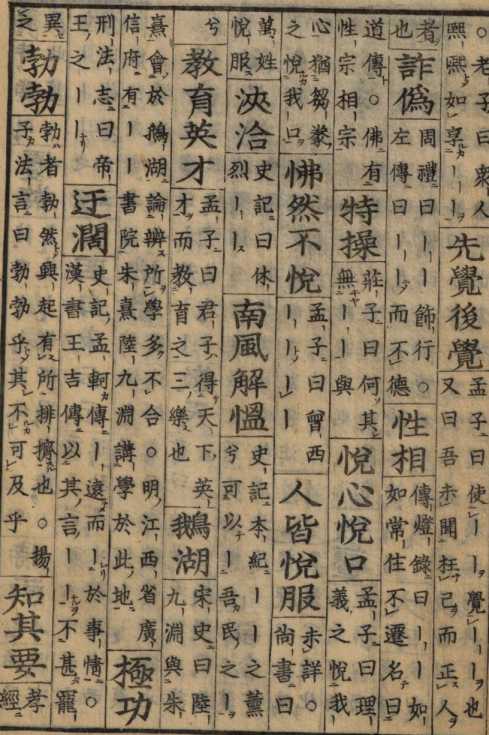 ○老子曰衆人
熈熈如享丨丨丨
先覺後覺
孟子曰使丨丨覺丨丨也
又曰吾未聞枉己而正人
者
也
詐僞
周禮曰丨丨飾行○
左傳曰丨丨丨而不德
性相
傳燈錄曰丨丨丨如
如常住不遷名曰
道傳○佛有
性宗相宗
特操
莊子曰何其
無丨丨與
悅心悅口
孟子曰理
義之悅我
心猶芻豢
之悅我口
怫然不悅
孟子曰曾西
丨丨丨丨
人皆悅服
未詳○
尚書曰
萬姓
悅服
浹洽
史記曰休
烈丨丨
南風解慍
史記本紀丨丨之薰
兮可以丨吾民之丨
兮
教育英才
孟子曰君子得天下英
才而教育之三樂也
鵝湖
宋史曰陸
九淵與朱
熹會於鵝湖論辨所學多不合○明江西省廣
信府有丨丨書院朱熹陸九淵講學於此地
極功
刑法志曰帝
王之丨丨
迂濶
史記孟軻傳丨遠而丨於事情○
漢書王吉傳以其言丨丨不甚寵
異
之
勃勃
勃者勃然興起有所排擠也○揚
子法言曰勃勃乎其不可及乎
知其要
孝
經